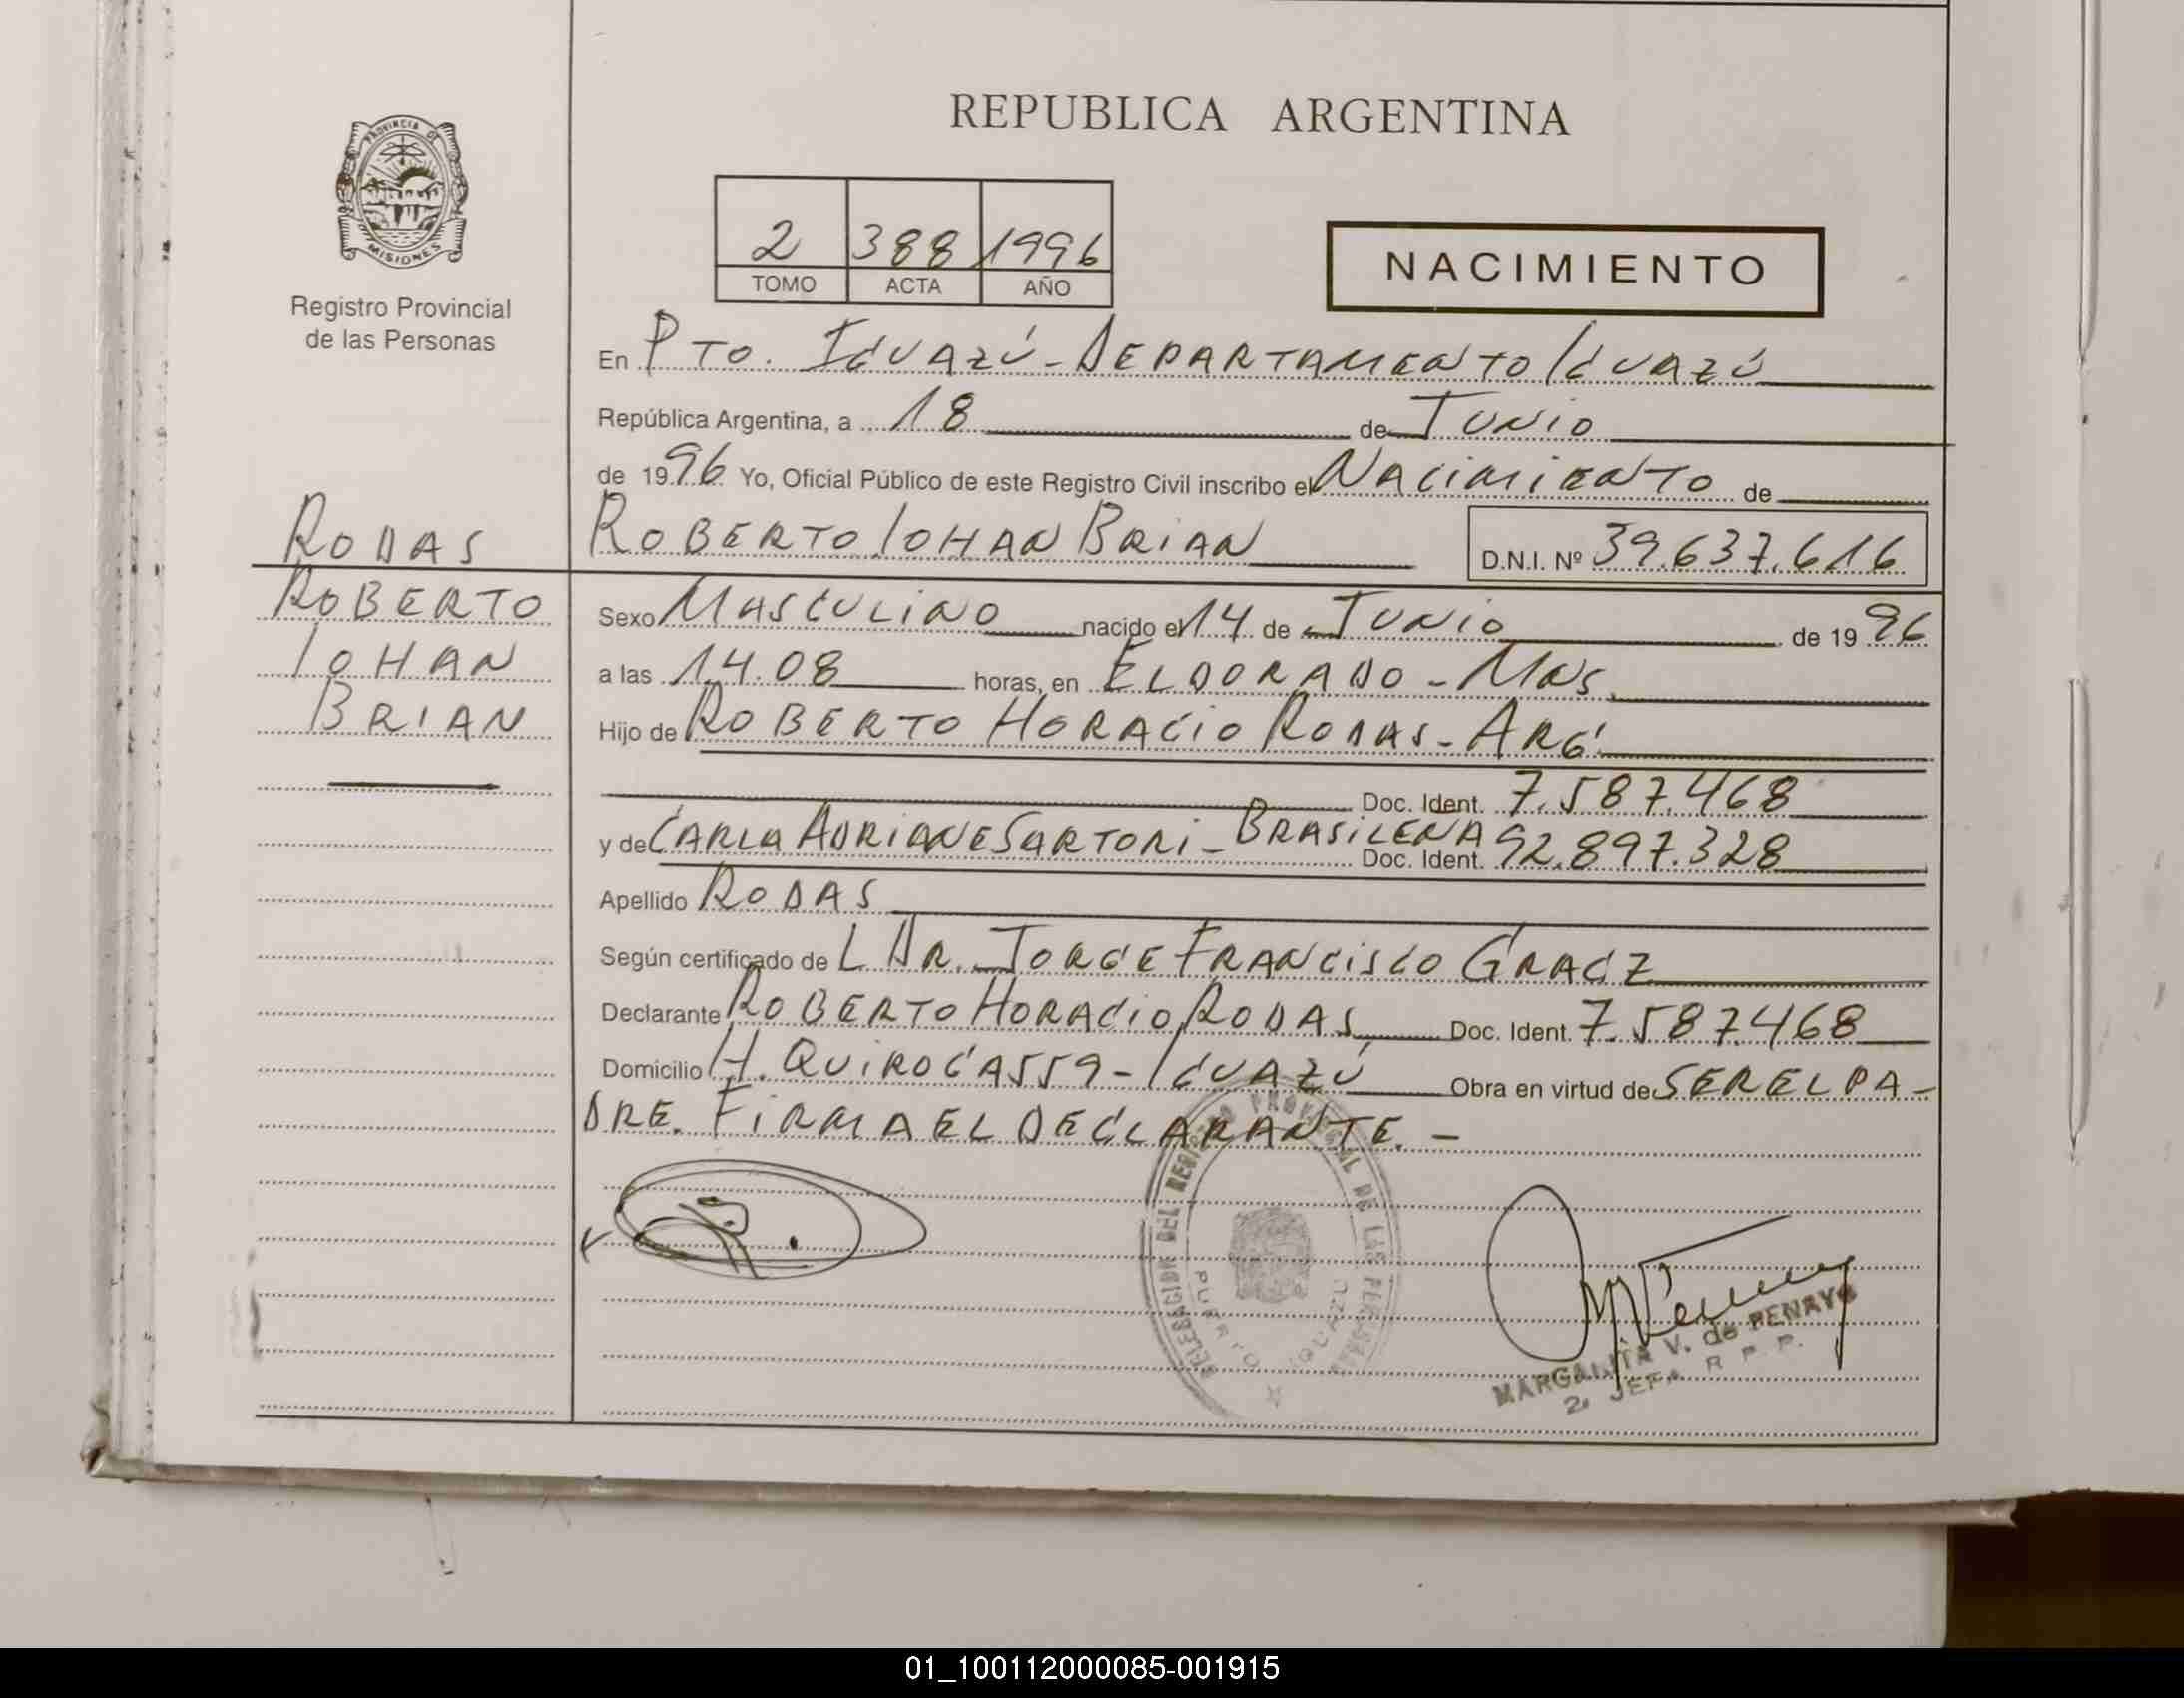 REPUBLICA ARGENTINA
PROVINCIA DE
MISIONES
Registro Provincial
de las Personas
2 388 1996
TOMO ACTA AÑO
NACIMIENTO
En PTO. IGUAZÚ - DEPARTAMENTO IGUAZÚ
República Argentina, a 18 de JUNIO
de 1996 Yo, Oficial Público de este Registro Civil inscribo el NACIMIENTO de
ROBERTO IOHAN BRIAN D.N.I. Nº 39.637.616
RODAS
ROBERTO
IOHAN
BRIAN
Sexo MASCULINO nacido el 14 de JUNIO de 1996
a las 14.08 horas, en ELDORADO - MNS.
Hijo de ROBERTO HORACIO RODAS - ARG.
Doc. Ident. 7.587.468
y de CARLA ADRIANE SARTORI - BRASILENA Doc. Ident. 92.897.328
Apellido RODAS
Según certificado de L DR. JORGE FRANCISCO
Declarante ROBERTO HORACIO RODAS Doc. Ident. 7.587.468
Domicilio H. QUIROGA 559 - IGUAZÚ Obra en virtud de SER EL PA-
DRE. FIRMA EL DECLARANTE. -
DELEGACION DEL REGISTRO PROVINCIAL DE LAS PERSONAS
PUERTO IGUAZU
MARGARITA V. de PENAYO
2ª JEFA R. P. P.
01_100112000085-001915